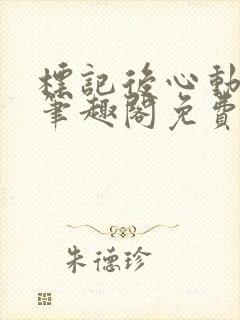 標記後心動
筆趣閣免費
朱德珍